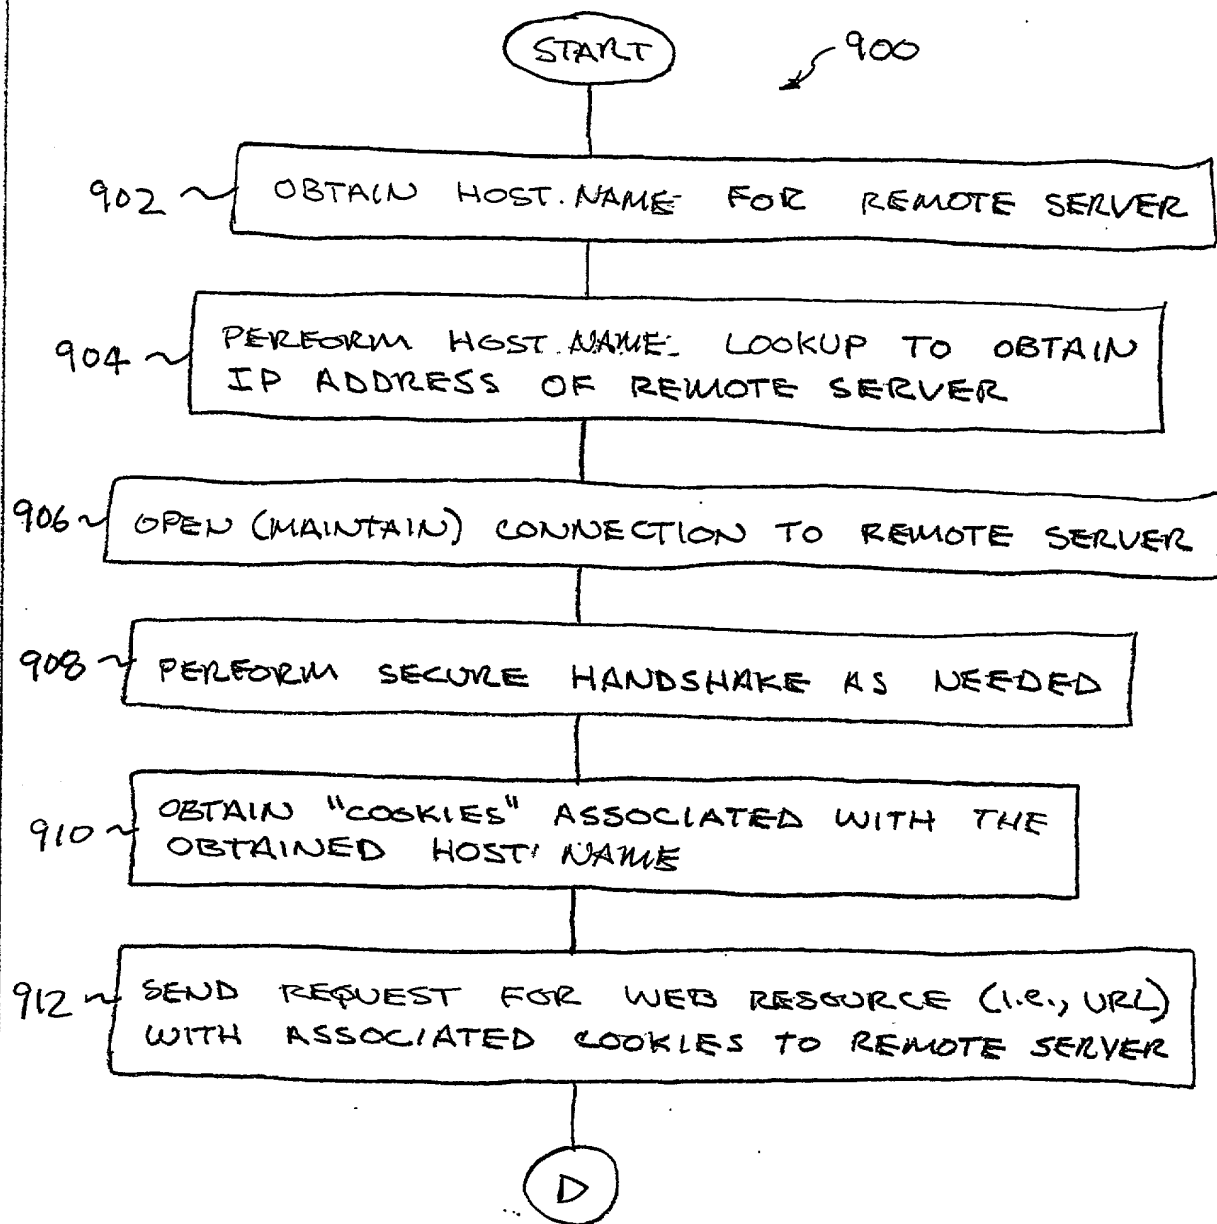 START
900
902 OBTAIN HOST NAME FOR REMOTE SERVER
904 PERFORM HOST NAME LOOKUP TO OBTAIN
IP ADDRESS OF REMOTE SERVER
906 OPEN (MAINTAIN) CONNECTION TO REMOTE SERVER
908 PERFORM SECURE HANDSHAKE AS NEEDED
910 OBTAIN "COOKIES" ASSOCIATED WITH THE
OBTAINED HOST NAME
912 SEND REQUEST FOR WEB RESOURCE (i.e., URL)
WITH ASSOCIATED COOKIES TO REMOTE SERVER
D